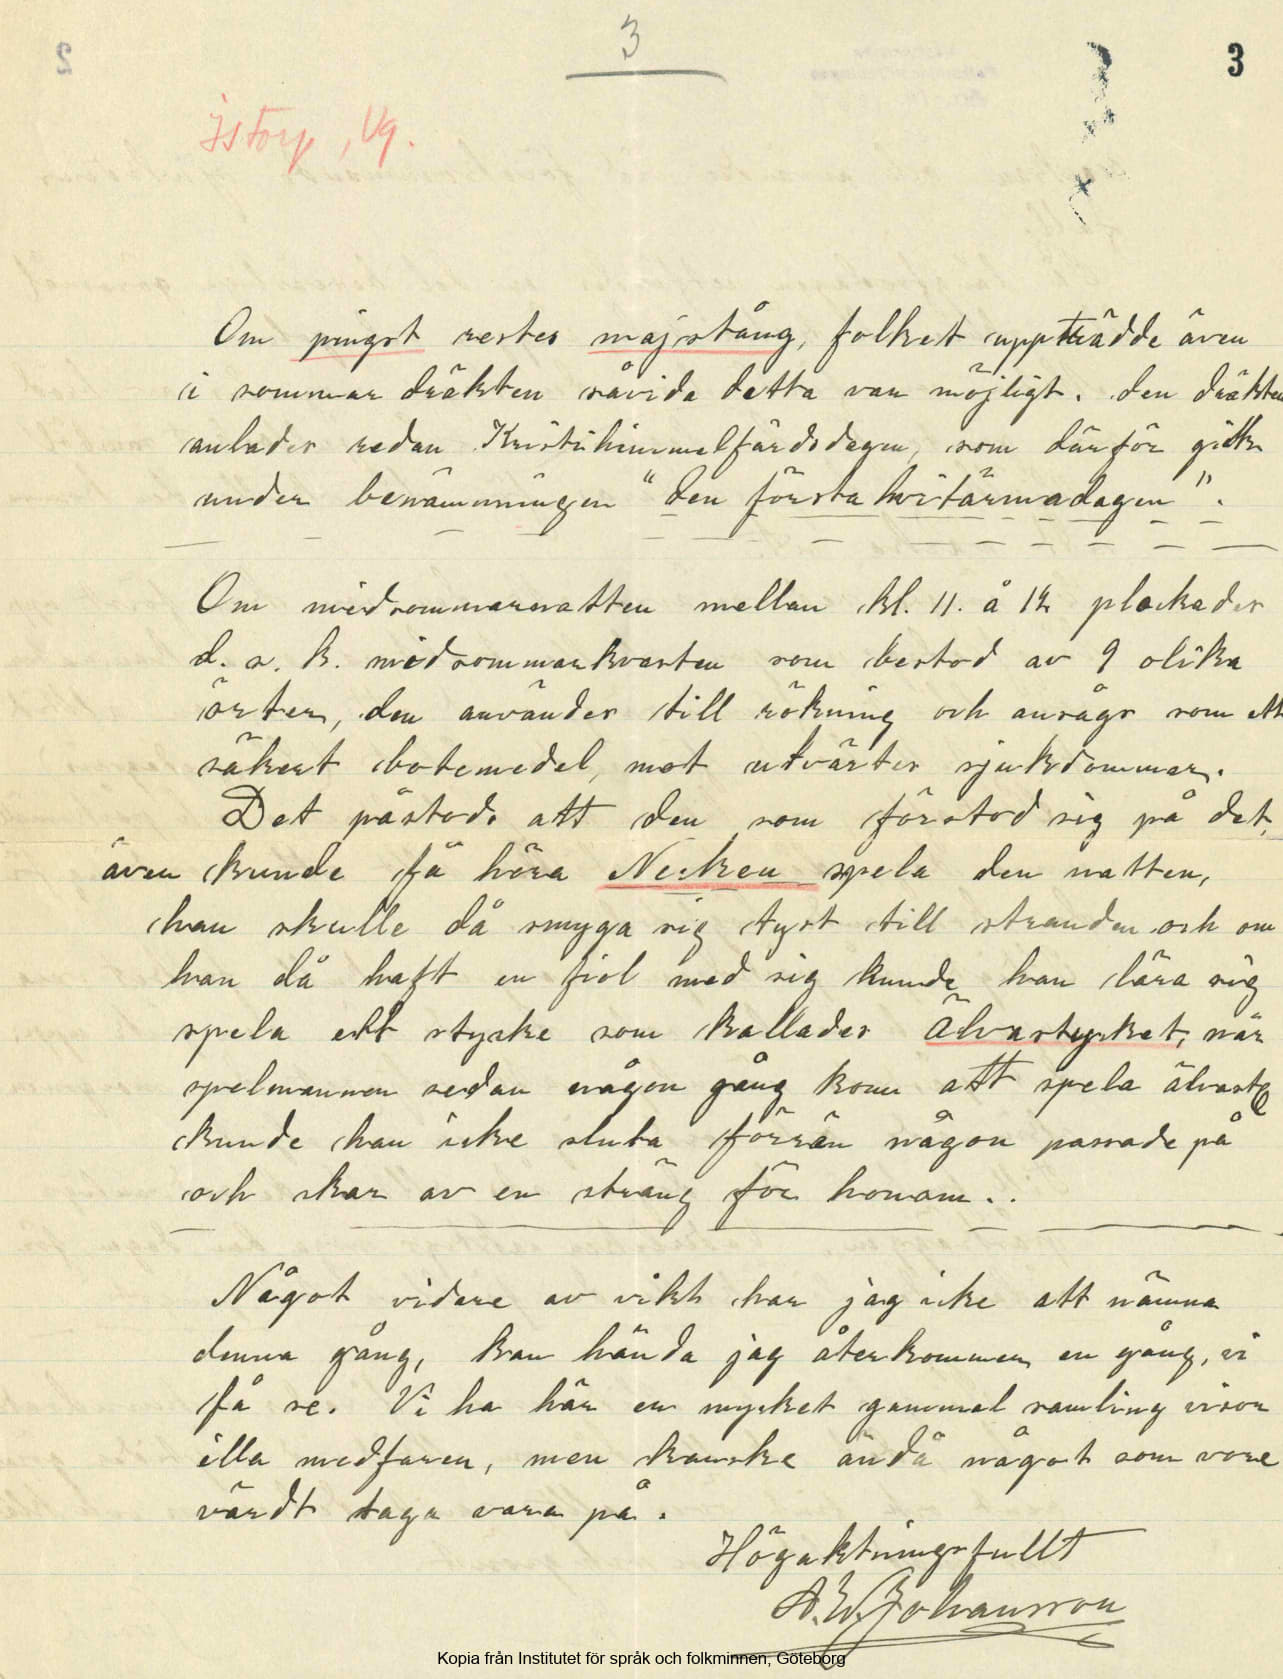 3
3
Istorp, Vg.
Om pingst restes majstång, folket uppträdde även
i sommar dräkten såvida detta var möjligt. den dräkten
anlades redan Kristihimmelfärdsdagen, som därför gick
under benämningen "den första hvitärmadagen".
Om midsommarnatten mellan kl. 11. å 12 plockades
d. s. k. midsommarkvasten som bestod av 9 olika
örter, den användes till rökning och ansågs som ett
säkert botemedel, mot utvärtes sjukdommar.
Det påstods att den som förstod sig på det,
även kunde få höra Necken spela den natten,
han skulle då smyga sig tyst till stranden och om
han då haft en fiol med sig kunde han lära sig
spela ett stycke som kallades Älvastycket, när
spelmannen sedan någon gång kom att spela älvast
kunde han icke sluta förrän någon passade på
och skar av en sträng för honom..
Något vidare av vikt har jag icke att nämna
denna gång, kan hända jag återkommer en gång, vi
få se. Vi ha här en mycket gammal samling visor
illa medfaren, men kanske ändå något som vore
värdt taga vara på.
Högaktningsfullt
A.W. Johansson
Kopia från Institutet för språk och folkminnen, Göteborg